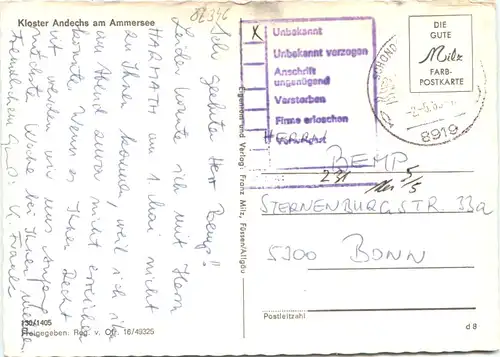 Kloster Andechs am Ammersee
82346
Sehr geehrter Herr Bemp!
Leider konnte ich mit Herrn
HARTATH am 1. Mai nicht
zu Ihnen kommen, weil ich ihn
am Abend zuvor nicht erreichen
konnte. Wenn es Ihnen Recht
ist werden wir uns Anfang
nächster Woche bei Ihnen melden
Freundlichen Gruß: K. Frank
130/1405
Freigegeben: Reg. v. Obb. 16/49325
Eigentum und Verlag: Franz Milz, Füssen/Allgäu
X
Unbekannt
Unbekannt verzogen
Anschrift ungenügend
Verstorben
Firma erloschen
DIE
GUTE
Milz
FARB-
POSTKARTE
8919
HERRN
BEMP
231
5/5
STERNENBURGSTR. 33a
5300 BONN
Postleitzahl
d 8